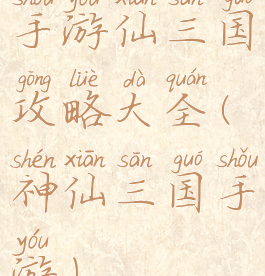 shǒu yóu xiān sān guó
手游仙三国
gōng lüè dà quán
攻略大全(
shén xiān sān guó shǒu
神仙三国手
yóu
游)